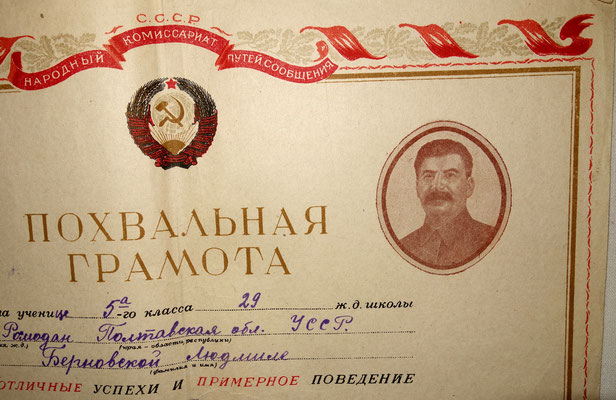 С.С.С.Р
НАРОДНЫЙ КОМИССАРИАТ ПУТЕЙ СООБЩЕНИЯ
ПОХВАЛЬНАЯ
ГРАМОТА
на ученице 5а-го класса 29 ж.д. школы
Ромодан Полтавская обл. УССР.
(край - области, республики)
Берновской Людмиле
(фамилия и имя)
ОТЛИЧНЫЕ УСПЕХИ И ПРИМЕРНОЕ ПОВЕДЕНИЕ